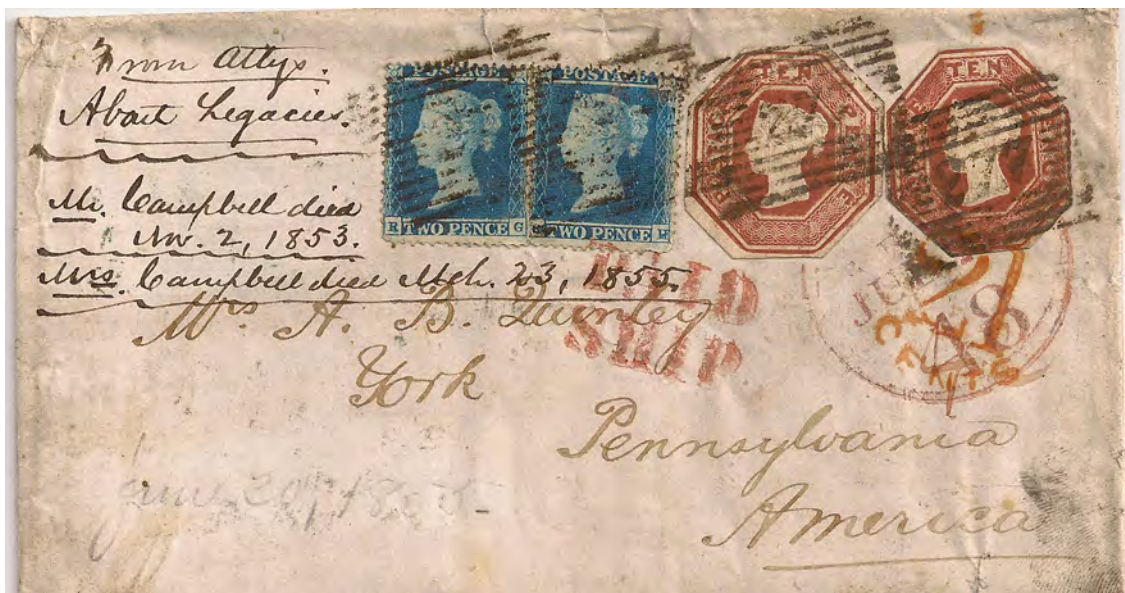 From Attys.
About Legacies.
Mr. Campbell died
Nov. 2, 1853.
Mrs. Campbell died Mch. 23, 1855.
POSTAGE
R TWO PENCE G
POSTAGE
TWO PENCE H
TEN PENCE
TEN
PAID
SHIP
48
Mrs A. B.
York
Pennsylvania
America